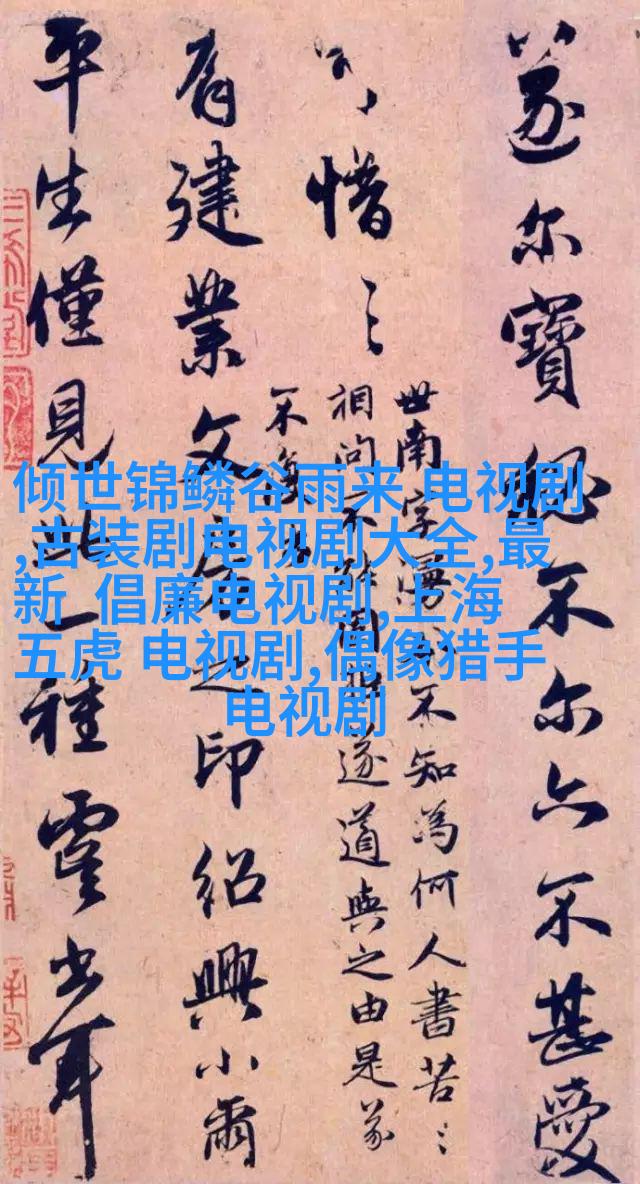 遂尔寶秘不尔亦不甚愛
世南字漫不知為何人書苦〻
相问不遂道與之由是
不
惜〻
有建業文之印紹興小爾
平生僅見此一種書耳
倾世锦鳞谷雨来 电视剧
,古装剧电视剧大全,最
新 倡廉电视剧,上海
五虎 电视剧,偶像猎手
电视剧